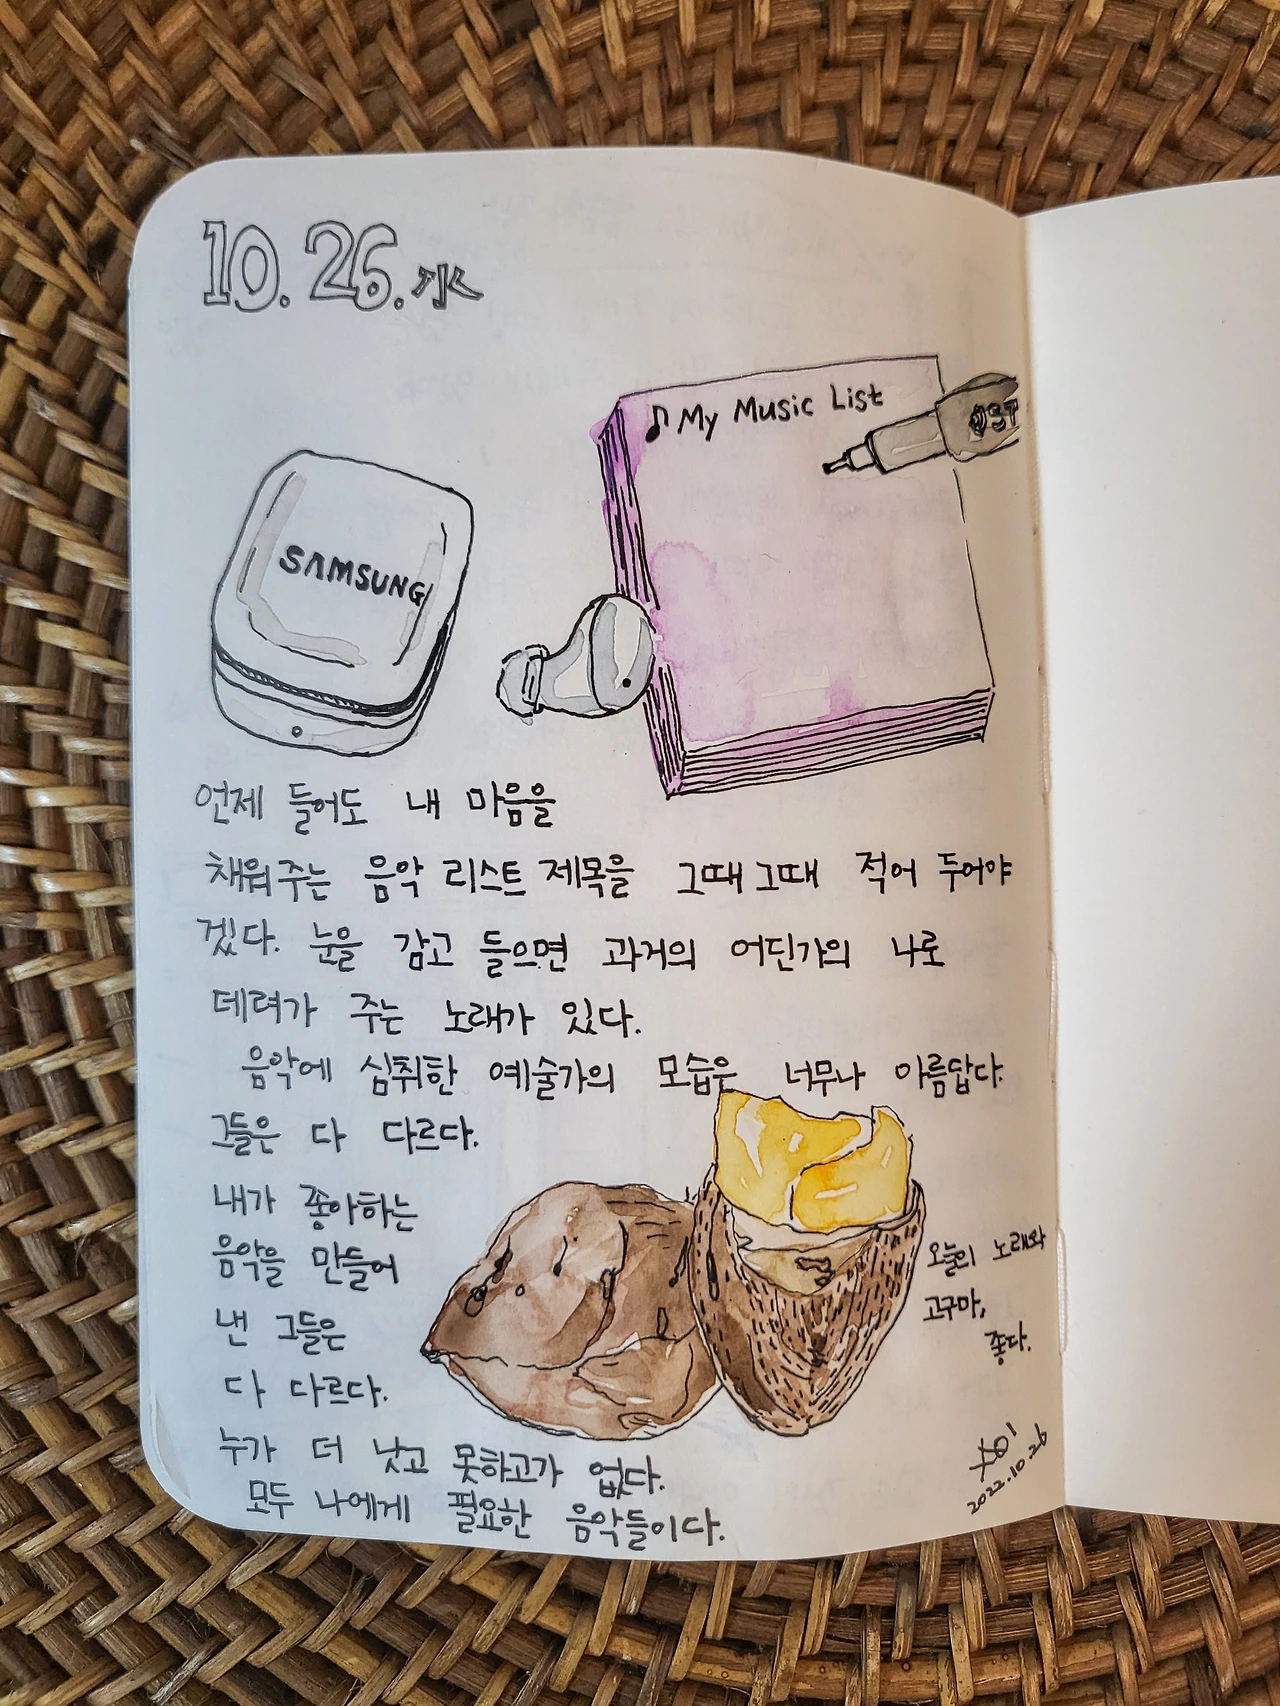 10. 26. 水
♪ My Music List
SAMSUNG
언제 들어도 내 마음을
채워주는 음악 리스트 제목을 그때그때 적어 두어야
겠다. 눈을 감고 들으면 과거의 어딘가의 나로
데려가 주는 노래가 있다.
음악에 심취한 예술가의 모습은 너무나 아름답다.
그들은 다 다르다.
내가 좋아하는
음악을 만들어
낸 그들은
다 다르다.
누가 더 낫고 못하고가 없다.
모두 나에게 필요한 음악들이다.
오늘의 노래와
고구마,
좋다.
2022.10.26